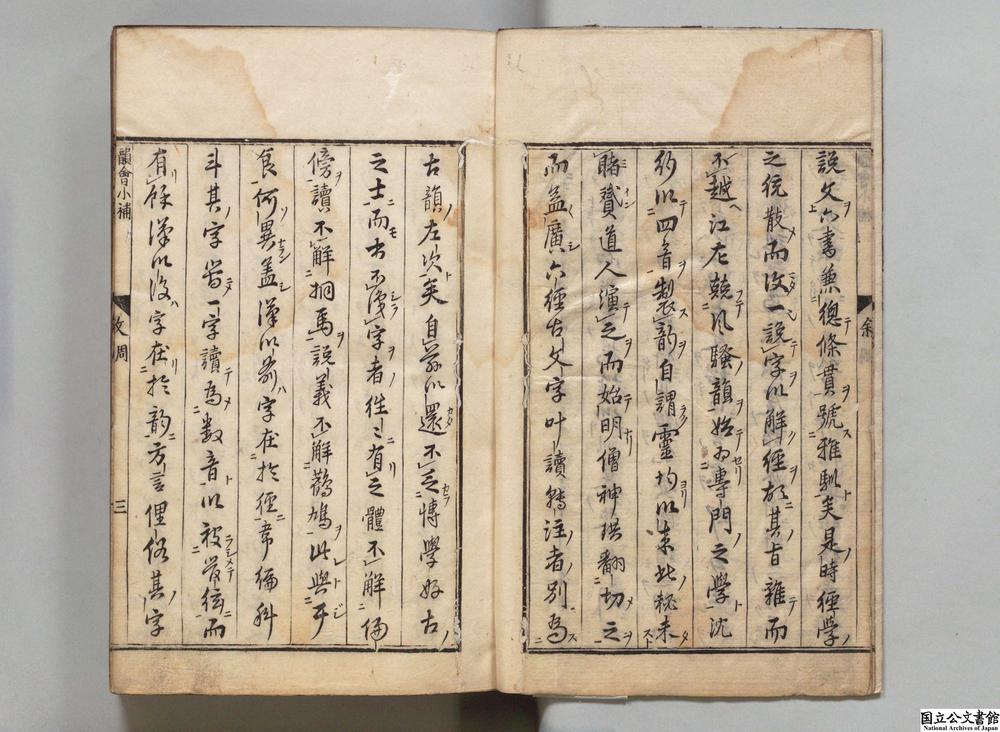 說文六書兼總條貫號雅馴矣是時經學
之統散而汶一說字以解經故其旨雜而
不越江左競風騷韻始為專門之學沈
約以四音製韵自謂靈均以來此秘未
睹贊道人演之而始明僧神珙翻切之
而益廣六經古文字叶讀轉注者別為
古韻左次矣自茲以還不乏博學好古
之士而古不復字者往往有之體不解偏
傍讀不解捫馬說義不解鵲鳩此與耳
食何異蓋漢以前字在於經韋編科
斗其字嘗一字讀為數音以被管絃而
有餘漢以後字在於韵方言俚俗其字
韻會小補
三
国立公文書館
National Archives of Japan